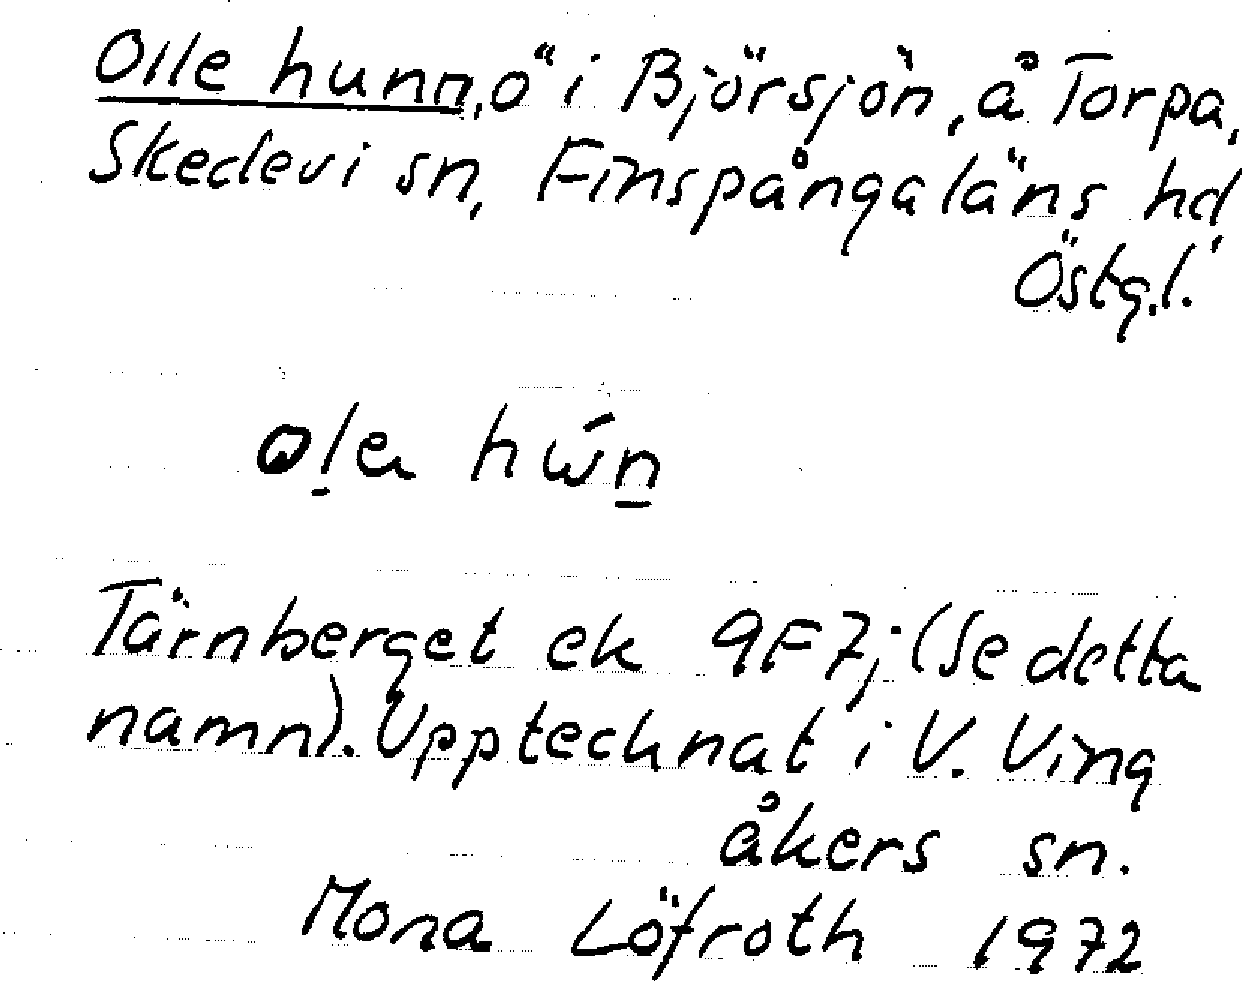 Olle hunn, ö i Björsjön, å Torpa,
Skedevi sn, Finspångaläns hd,
Östg.l.
Tärnberget ek 9F7; (Se detta
namn). Upptecknat i V. Ving
åkers sn.
Mona Löfroth 1972